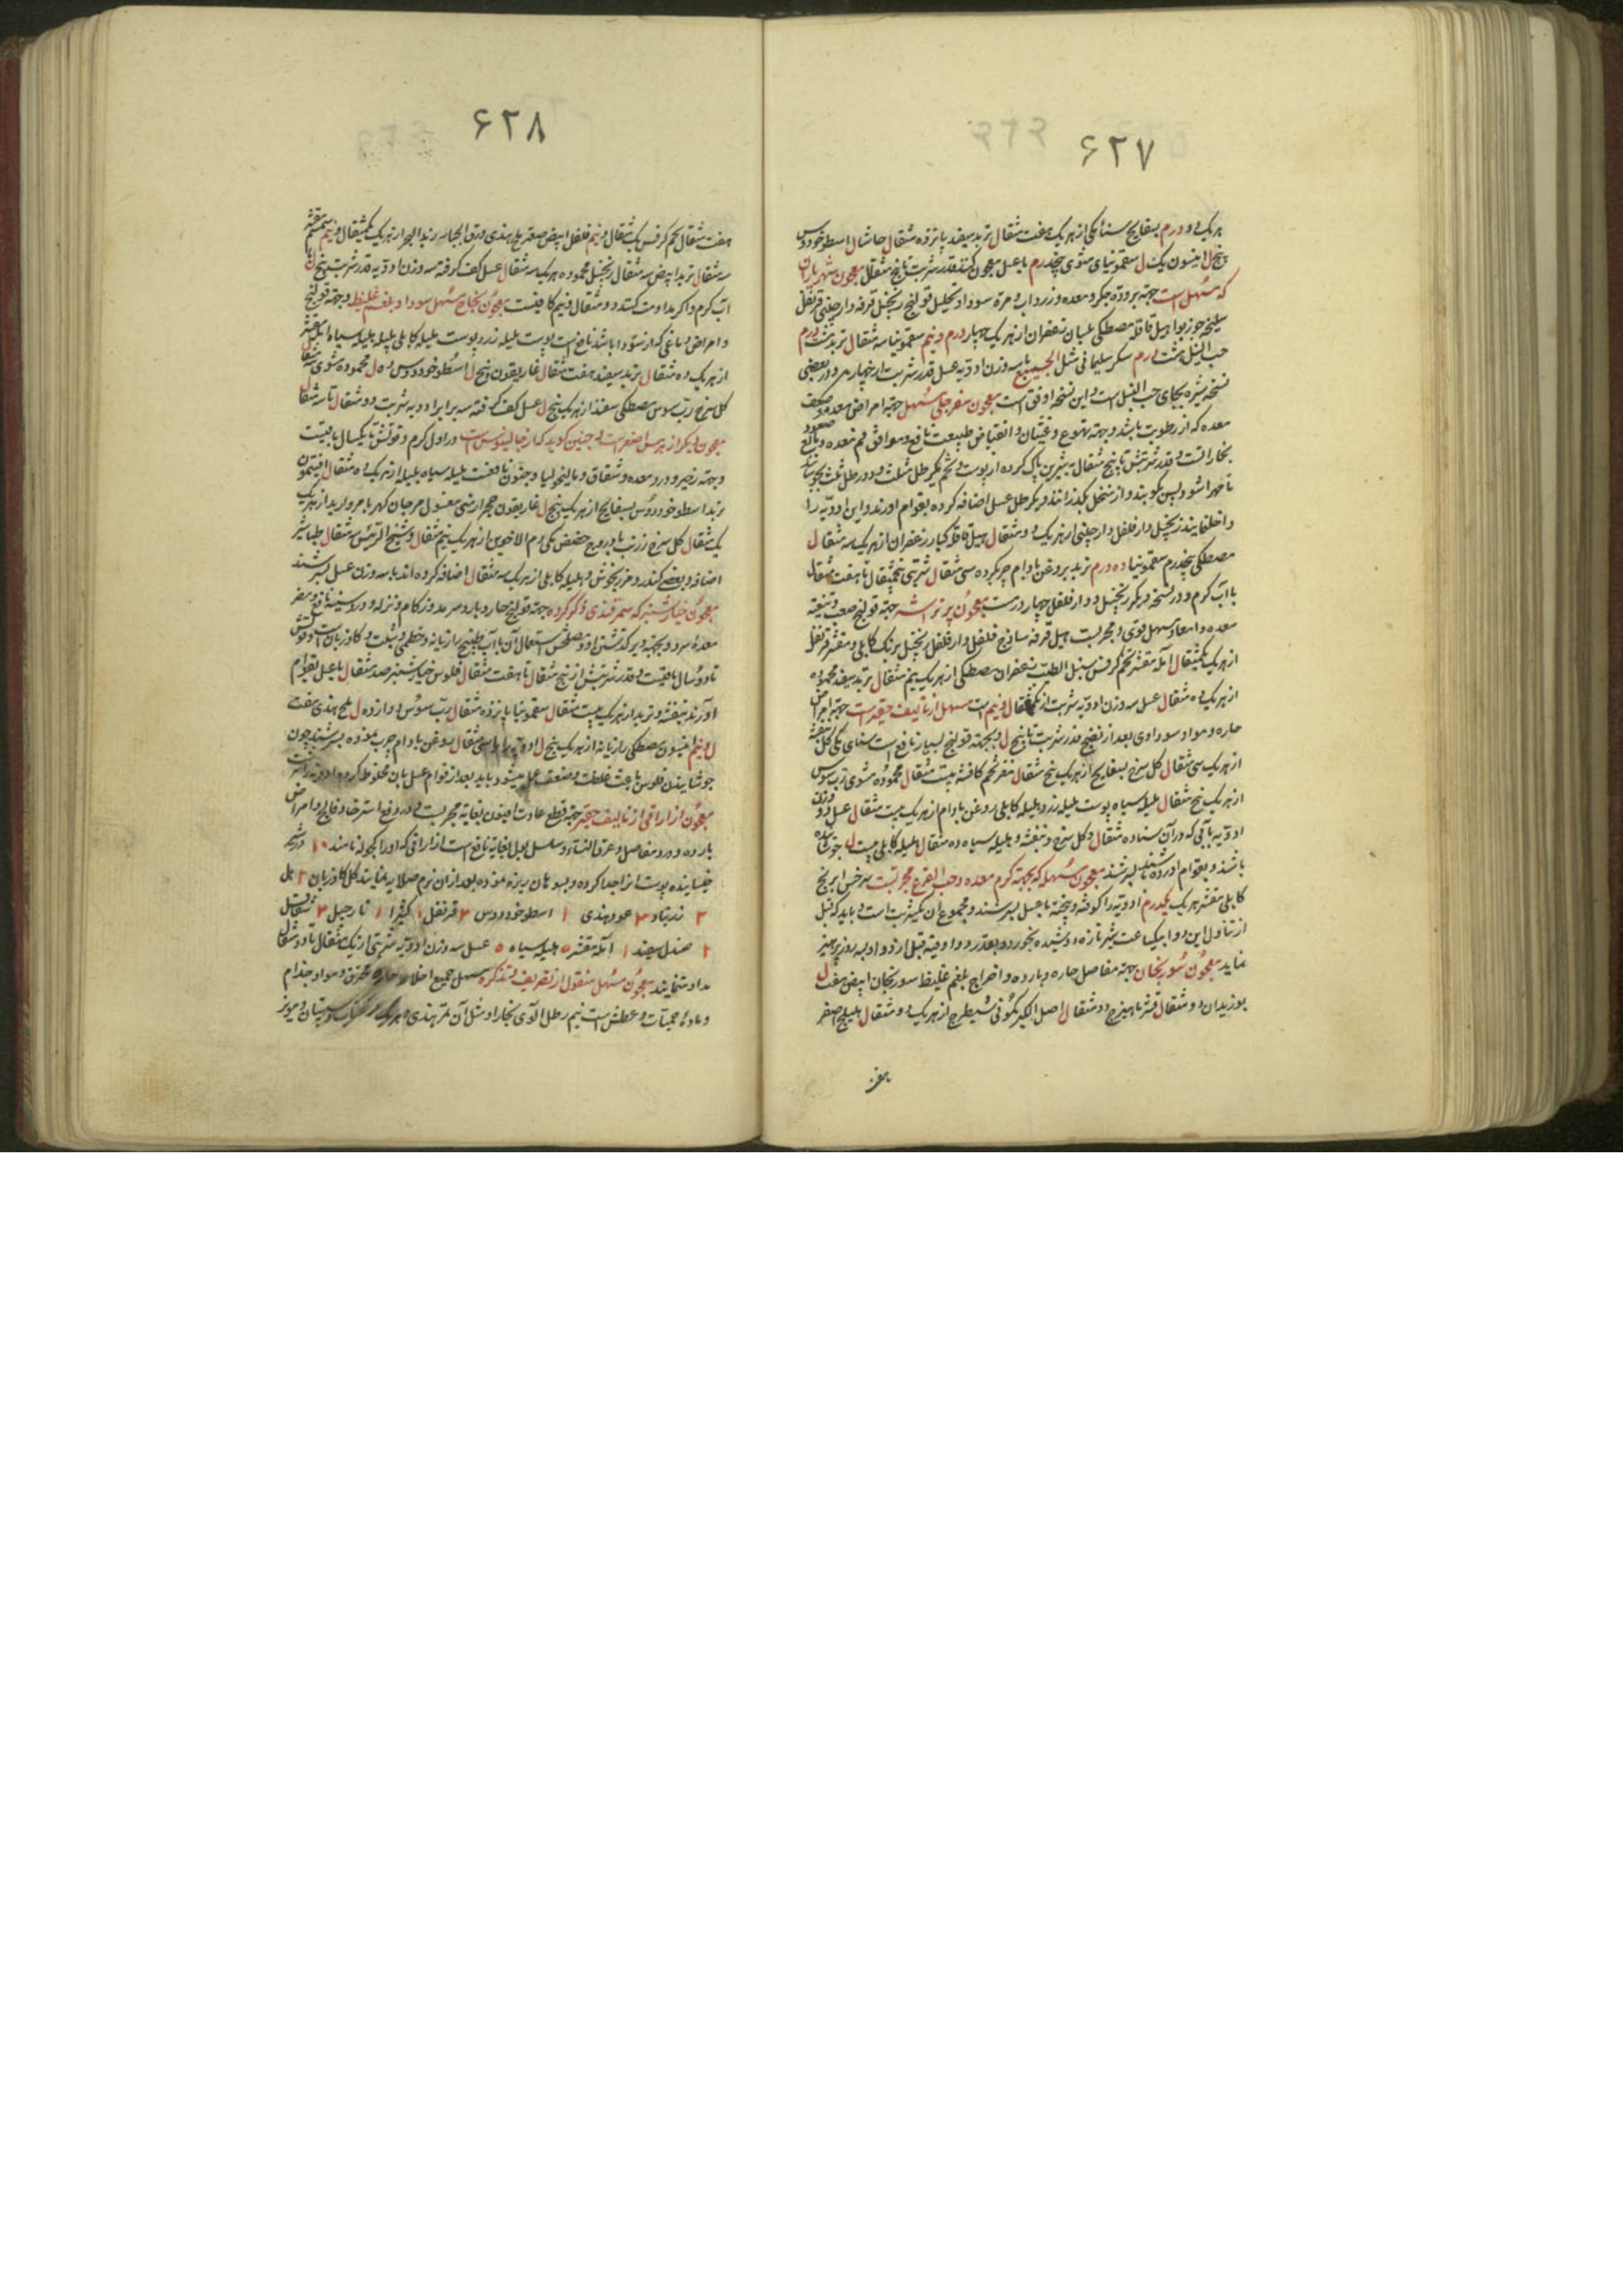 ۶۲۷
هر یک دو درم بسفایج سنا مکی از هر یک هفت مثقال تربد سفید پانزده مثقال حاشا ل اسطوخودوس
پنج ل انیسون یک ل سقمونیای مشوی پنجدرم با عسل معجون کنند قدر شربت تا پنج مثقال معجون شهریاران
که مسهل است جهة برودة جکر و معده و زرداب و مرة سودا و تحلیل قولنج زنجبیل قرفه دارچینی قرنفل
سلیخه جوزبوا هیل قاقله مصطکی بلسان زعفران از هر یک چهار درم و نیم سقمونیا سه مثقال تربد هشت درم
حب النیل هشت درم سکر سلیمانی مثل الجمیع با سه وزن ادویه عسل قدر شربت از چهار در بعضی
نسخه بجای حب النیل است و این نسخه اوفق است معجون سفرجلی مسهل جهة امراض معده و ضعف
معده که از رطوبت باشد و جهة تهوع و غثیان و انقباض طبیعت نافع و موافق فم معده و مانع صعود
بخارا تست و قدر شربتش تا پنج مثقال به شیرین پاک کرده از پوست و تخم یکرطل مثلث و دو رطل بجوشانند
تا مهرا شود پس بکوبند و از منخل بکذرانند و یکرطل عسل اضافه کرده بقوام اورند و این ادویه را
داخل نمایند زنجبیل دارفلفل دارچینی از هر یک دو مثقال هیل قاقله کبار زعفران از هر یک سه مثقال
مصطکی پنجدرم سقمونیا ده درم تربد بروغن بادام چرب کرده سی مثقال شربتی پنجمثقال تا هفت مثقال
با آب کرم و در نسخه دیکر زنجبیل و دارفلفل چهار درمست معجون جهة قولنج صعب و تنقیه
معده و امعا و مسهل قوی و مجربست هیل قرفه ساذج فلفل دارفلفل زنجبیل برنک کابلی مقشر قرنفل
از هر یک یکمثقال آمله مقشر تخم کرفس سنبل الطیب زعفران مصطکی از هر یک نیم مثقال تربد سفید محموده
از هر یک ده مثقال عسل سه وزن ادویه شربت از یکمثقال و نیم است مسهل از تالیف حقیر است جهة امراض
حاره و مواد سوداوی بعد از نضج قدر شربت تا پنج ل و بجهة قولنج بسیار نافع است سنای مکی کل بنفشه
از هر یک سی مثقال کل سرخ بسفایج از هر یک پنج مثقال مغز تخم کافشه بیست مثقال محموده مشوی رب سوس
از هر یک پنج مثقال هلیله سیاه پوست هلیله زرد هلیله کابلی روغن بادام از هر یک بیست مثقال عسل دو وزن
ادویه بآبی که در آن سنا ده مثقال و کل سرخ و بنفشه و هلیله سیاه ده مثقال هلیله کابلی بیست ل جوشانیده
باشند و بقوام اورده باشند بسرشند معجون مسهل که بجهة کرم معده و حب القرع مجربست سرخس ابرنج
کابلی مقشر هر یک یکدرم ادویه را کوفته و بیخته با عسل بسرشند و مجموع ان یکشربت است و باید که قبل
از تناول این دوا بیکساعت شیر تازه دوشیده بخورد و بقدر دو اوقیه قبل از دوا دو سه روز پرهیز
نماید معجون سورنجان جهة مفاصل حاره و بارده و اخراج بلغم غلیظ سورنجان ابیض هفت ل
بوزیدان دو مثقال قشر ماهیزهرج دو مثقال اصل الکبر کمونی شیطرج از هر یک دو مثقال هلیلج اصفر
هفت
۶۲۸
هفت مثقال تخم کرفس یک مثقال و نیم فلفل ابیض صعتر ملح هندی ورق الحنا زبد البحر از هر یک یکمثقال و نیم سمسم مقشر
سه مثقال تربد ابیض سه مثقال زنجبیل محموده هر یک سه مثقال عسل کف کرفته سه وزن ادویه قدر شربت پنج ل با
آب کرم و اکر مداومت کنند دو مثقال و نیم کافیست معجون نجاح مسهل سودا و بلغم غلیظ و جهة قولنج
و امراض دماغی که از سودا باشد نافع است پوست هلیله زرد پوست هلیله کابلی هلیله سیاه آمله مقشر
از هر یک ده مثقال تربد سفید هفت مثقال غاریقون پنج ل اسطوخودوس ده ل محموده مشوی سه مثقال
کل سرخ رب سوس مصطکی سفید از هر یک پنج ل عسل کف کرفته سه برابر ادویه شربت دو مثقال تا سه مثقال
معجون دیکر از هرمس اصغر است و چنین کوید که از جالینوس است در اول کرم و قوتش تا یکسال باقیست
و جهة زحیر و درد معده و شقاق و مالیخولیا و جنون نافعست هلیله سیاه بلیله از هر یک ده مثقال افتیمون
تربد اسطوخودوس بسفایج از هر یک پنج ل غاریقون حجر ارمنی مغسول مرجان کهربا مروارید از هر یک
یک مثقال کل سرخ زرنب بادروج حضض مکی دم الاخوین از هر یک نیم مثقال و شیخ الرئیس سه مثقال طباشیر
اضافه و بعضی کندر و مرزنجوش و هلیله کابلی از هر یک سه مثقال اضافه کرده اند با سه وزن عسل بسرشند
معجون خیارشنبر که سمرقندی ذکر کرده جهة قولنج حار و بارد و سرمد و زکام و نزله و درد سینه نافع و مضر
معدهٔ سرد و بجهة دیر کذشتن او و مصلحش استعمال آن با آب طبیخ رازیانه و خطمی و شبت و کاوزبان است و قوتش
تا دو سال باقیست و قدر شربتش از پنج مثقال تا هفت مثقال فلوس خیارشنبر صد مثقال با عسل بقوام
آورند بنفشه و تربد از هر یک بیست مثقال سقمونیا پانزده مثقال رب سوس دوازده ل ملح هندی هفت
ل و نیم انیسون مصطکی رازیانه از هر یک پنج ل ادویه را با سی مثقال روغن بادام چرب نموده بسرشند چون
جوشانیدن فلوس باعث غلظت و ضعف عمل میشود باید بعد از قوام عسل بان مخلوط کرده ادویه را سرشت
معجون ازاراقی از تالیف حقیر جهة قطع عادت افیون بغایة مجربست و در رفع استرخا و فالج و امراض
بارده و درد مفاصل و عرق النساء و سلسل البول بغایة نافع است ازاراقی که اورا کچوله نامند ۱۰ در شیر
خیسانیده پوست انرا جدا کرده و بسوهان ریزه نموده بعد از ان نرم صلایه نمایند کل کاوزبان ۲ هل
۲ زرنباد ۳ عود هندی ۱ اسطوخودوس ۳ قرنفل ۱ کثیرا ۱ نارجیل ۳
۲ صندل سفید ۱ آمله مقشر ۵ هلیله سیاه ۵ عسل سه وزن ادویه شربتی از یک مثقال تا دو مثقال
مداومت نمایند معجون مسهل منقول از تذکره مسهل جمیع اخلاط حاره محترق و مواد جذام
و مادهٔ حمیات و عطش است نیم رطل آلوی بخارا و مثل آن تمر هندی و سپستان و مویز